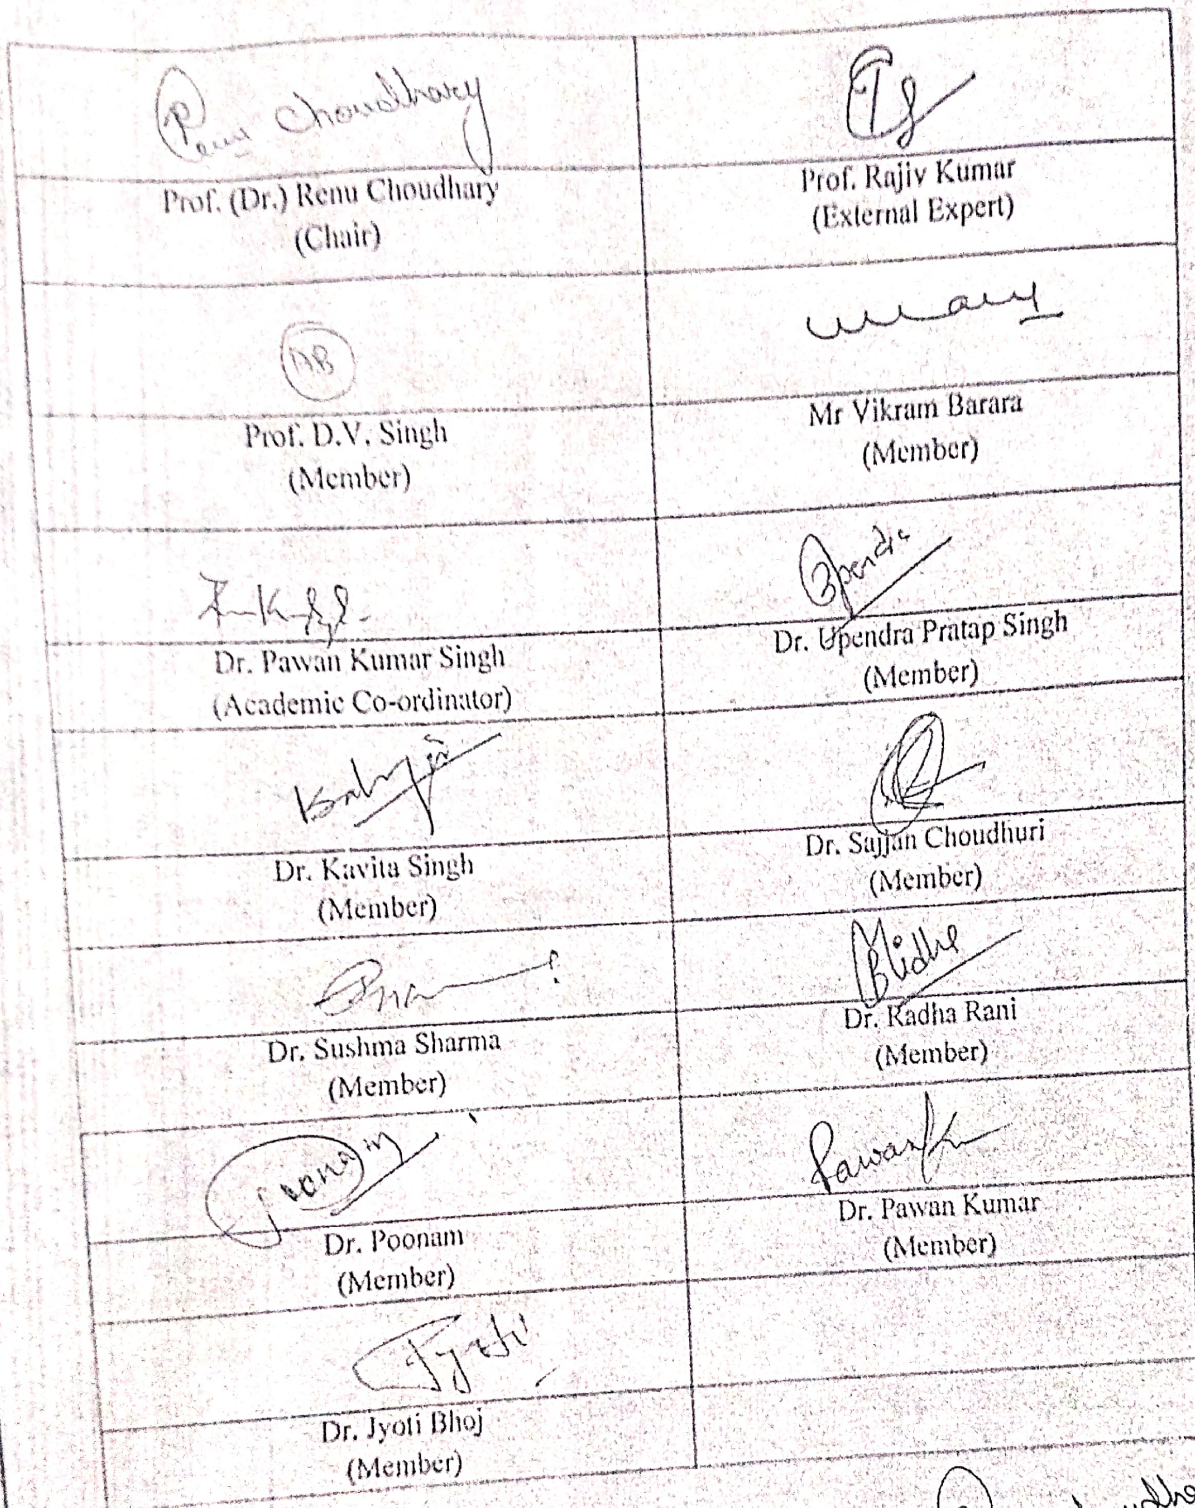 Renu Choudhary
Prof. (Dr.) Renu Choudhary
(Chair)
Prof. Rajiv Kumar
(External Expert)
Prof. D.V. Singh
(Member)
Mr Vikram Barara
(Member)
Dr. Pawan Kumar Singh
(Academic Co-ordinator)
Upendra
Dr. Upendra Pratap Singh
(Member)
Dr. Kavita Singh
(Member)
Dr. Sajjan Choudhuri
(Member)
Dr. Sushma Sharma
(Member)
Dr. Radha Rani
(Member)
Poonam
Dr. Poonam
(Member)
Pawan
Dr. Pawan Kumar
(Member)
Jyoti
Dr. Jyoti Bhoj
(Member)